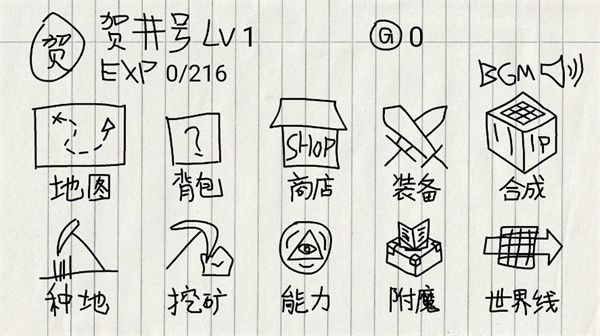 贺 贺井号 LV1 G 0
EXP 0/216 BGM
? SHOP IP
地图 背包 商店 装备 合成
种地 挖矿 能力 附魔 世界线